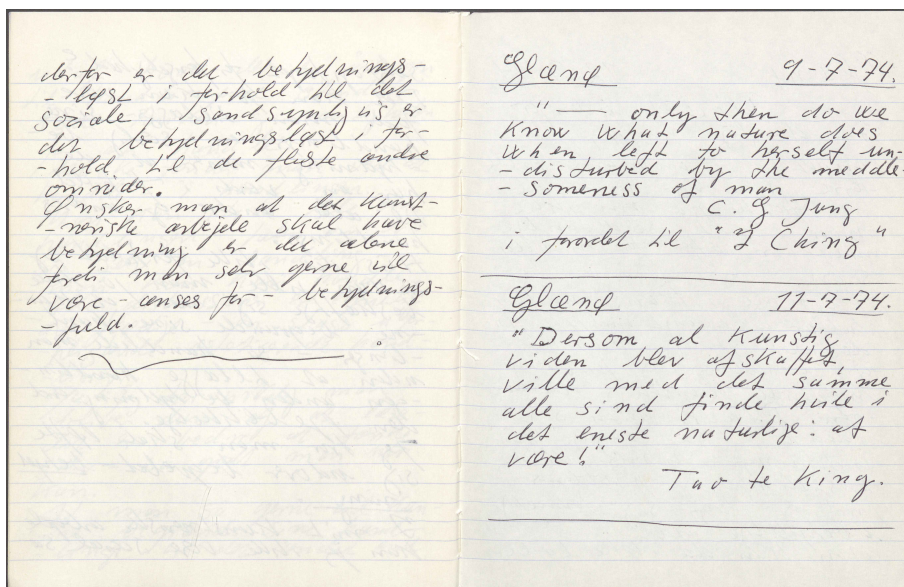 derfor er det betydnings-
-løst i forhold til det
sociale, sandsynligvis er
det betydningsløst i for-
-hold til de fleste andre
områder.
Ønsker man at det kunst-
-neriske arbejde skal have
betydning er det alene
fordi man selv gerne vil
være - anses for - betydnings-
-fuld.
Glænø 9-7-74.
"— only then do we
know what nature does
when left to herself un-
-disturbed by the meddle-
-someness of man
C. G Jung
i forordet til "I Ching"
Glænø 11-7-74.
"Dersom al kunstig
viden blev afskaffet,
ville med det samme
alle sind finde hvile i
det eneste naturlige: at
være!"
Tao te King.